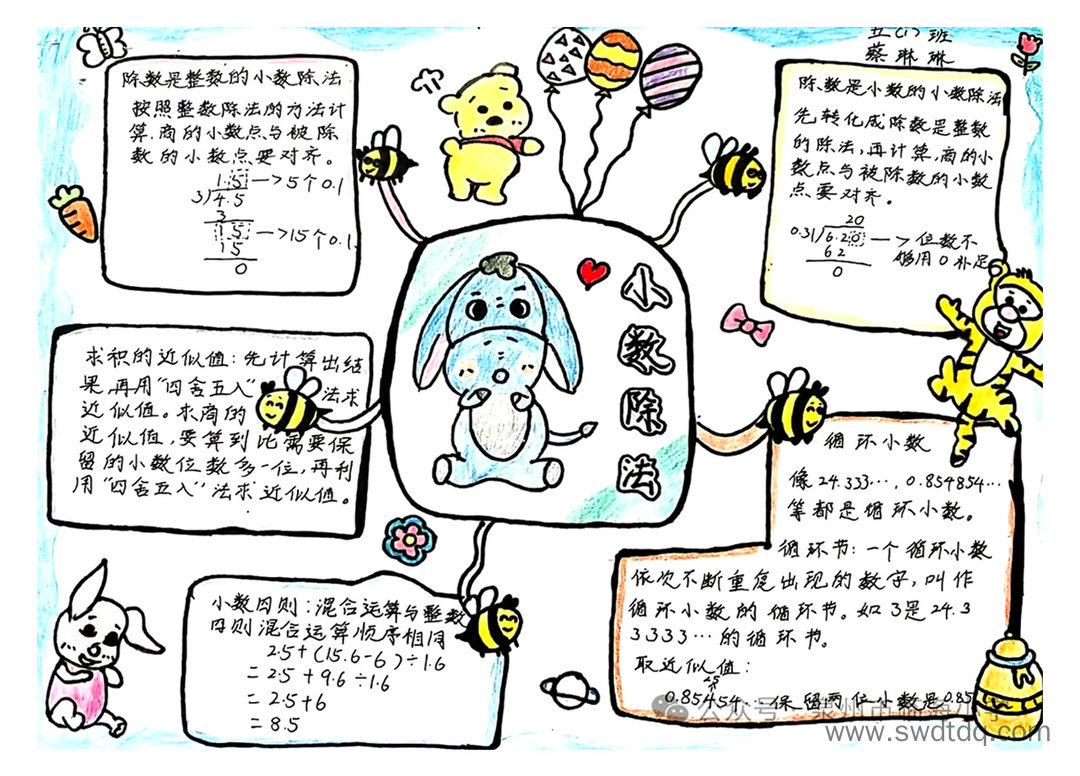 五(1)班
蔡琳琳
除数是整数的小数除法
按照整数除法的方法计
算,商的小数点与被除
数的小数点要对齐。
1.5 —>5个0.1
3/4.5
3
1 5 —>15个0.1
1 5
0
除数是小数的小数除法
先转化成除数是整数
的除法,再计算,商的小
数点与被除数的小数
点要对齐。
20
0.31/6.20 —> 位数不
够用0补足
62
0
小
数
除
法
求积的近似值:先计算出结
果,再用“四舍五入”法求
近似值。求商的
近似值,要算到比需要保
留的小数位数多一位,再利
用“四舍五入”法求近似值。
循环小数
像24.333…,0.854854…
等都是循环小数。
循环节:一个循环小数
依次不断重复出现的数字,叫作
循环小数的循环节。如3是24.3
3333…的循环节。
取近似值:
0.85454 保留两位小数是0.85
小数四则:混合运算与整数
四则混合运算顺序相同
2.5+(15.6-6)÷1.6
=2.5+9.6÷1.6
=2.5+6
=8.5
公众号
www.swdtdq.com